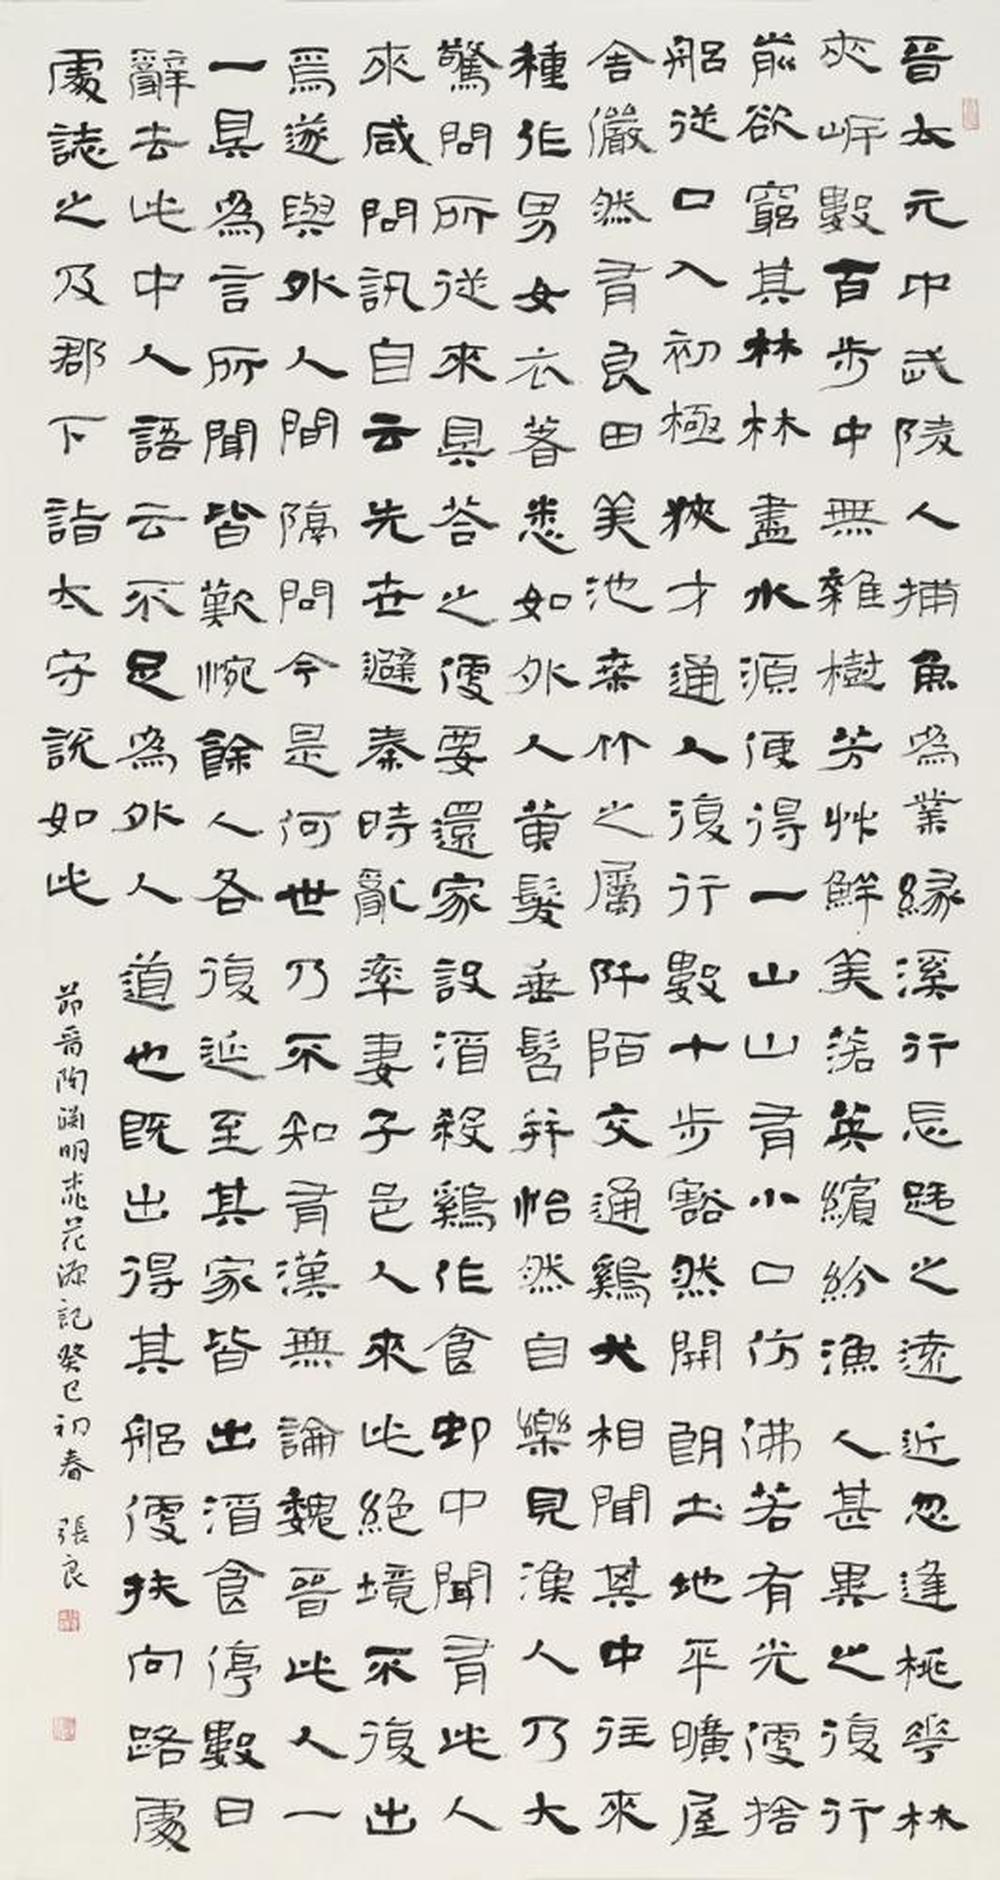 晉太元中武陵人捕魚為業緣溪行忘路之遠近忽逢桃華林
夾岸數百步中無雜樹芳艸鮮美落英繽紛漁人甚異之復行
前欲窮其林林盡水源便得一山山有小口仿佛若有光便捨
船從口入初極狹才通人復行數十步豁然開朗土地平曠屋
舍儼然有良田美池桑竹之屬阡陌交通鷄犬相聞其中往來
種作男女衣著悉如外人黃髮垂髫并怡然自樂見漁人乃大
驚問所從來具答之便要還家設酒殺鷄作食邨中聞有此人
來咸問訊自云先世避秦時亂率妻子邑人來此絕境不復出
焉遂與外人間隔問今是何世乃不知有漢無論魏晉此人一
一具為言所聞皆歎惋餘人各復延至其家皆出酒食停數日
辭去此中人語云不足為外人道也既出得其船便扶向路處
處誌之及郡下詣太守說如此
節晉陶淵明桃花源記癸巳初春 張良